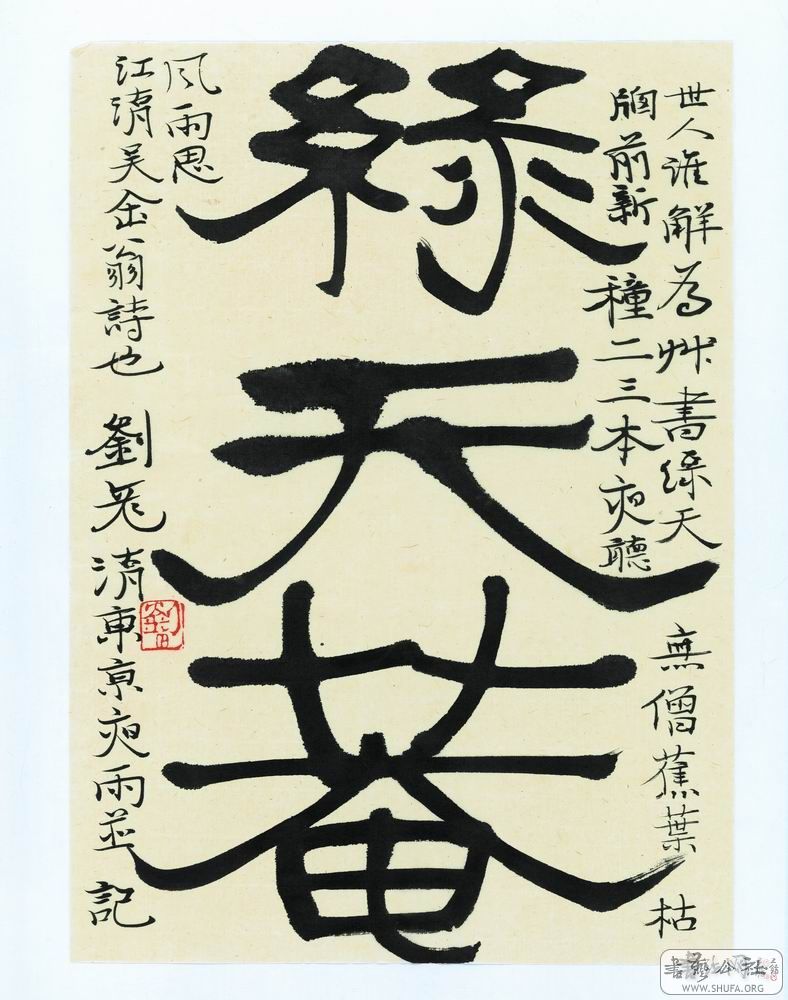 綠天菴
世人誰解為艸書綠天無僧蕉葉枯
牕前新種二三本夜聽
風雨思
江湖吴缶翁詩也劉彥湖東京夜雨並記
劉
書藝公社
WWW.SHUFA.ORG